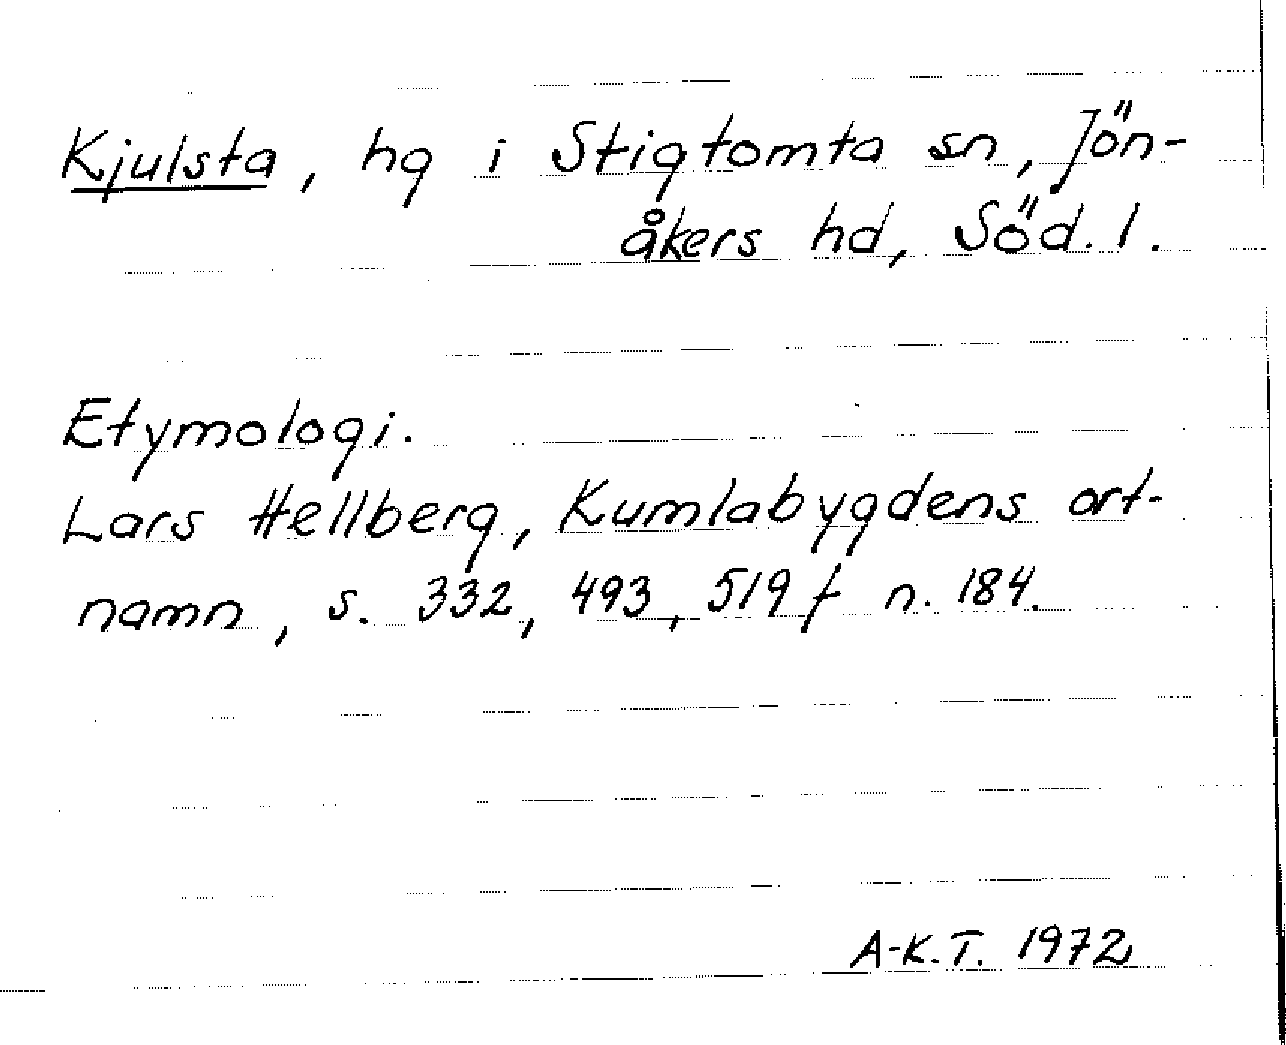 Kjulsta, hg i Stigtomta sn, Jön-
åkers hd, Söd. l.
Etymologi.
Lars Hellberg, Kumlabygdens ort-
namn, s. 332, 493, 519 f n. 184.
A-K.T. 1972